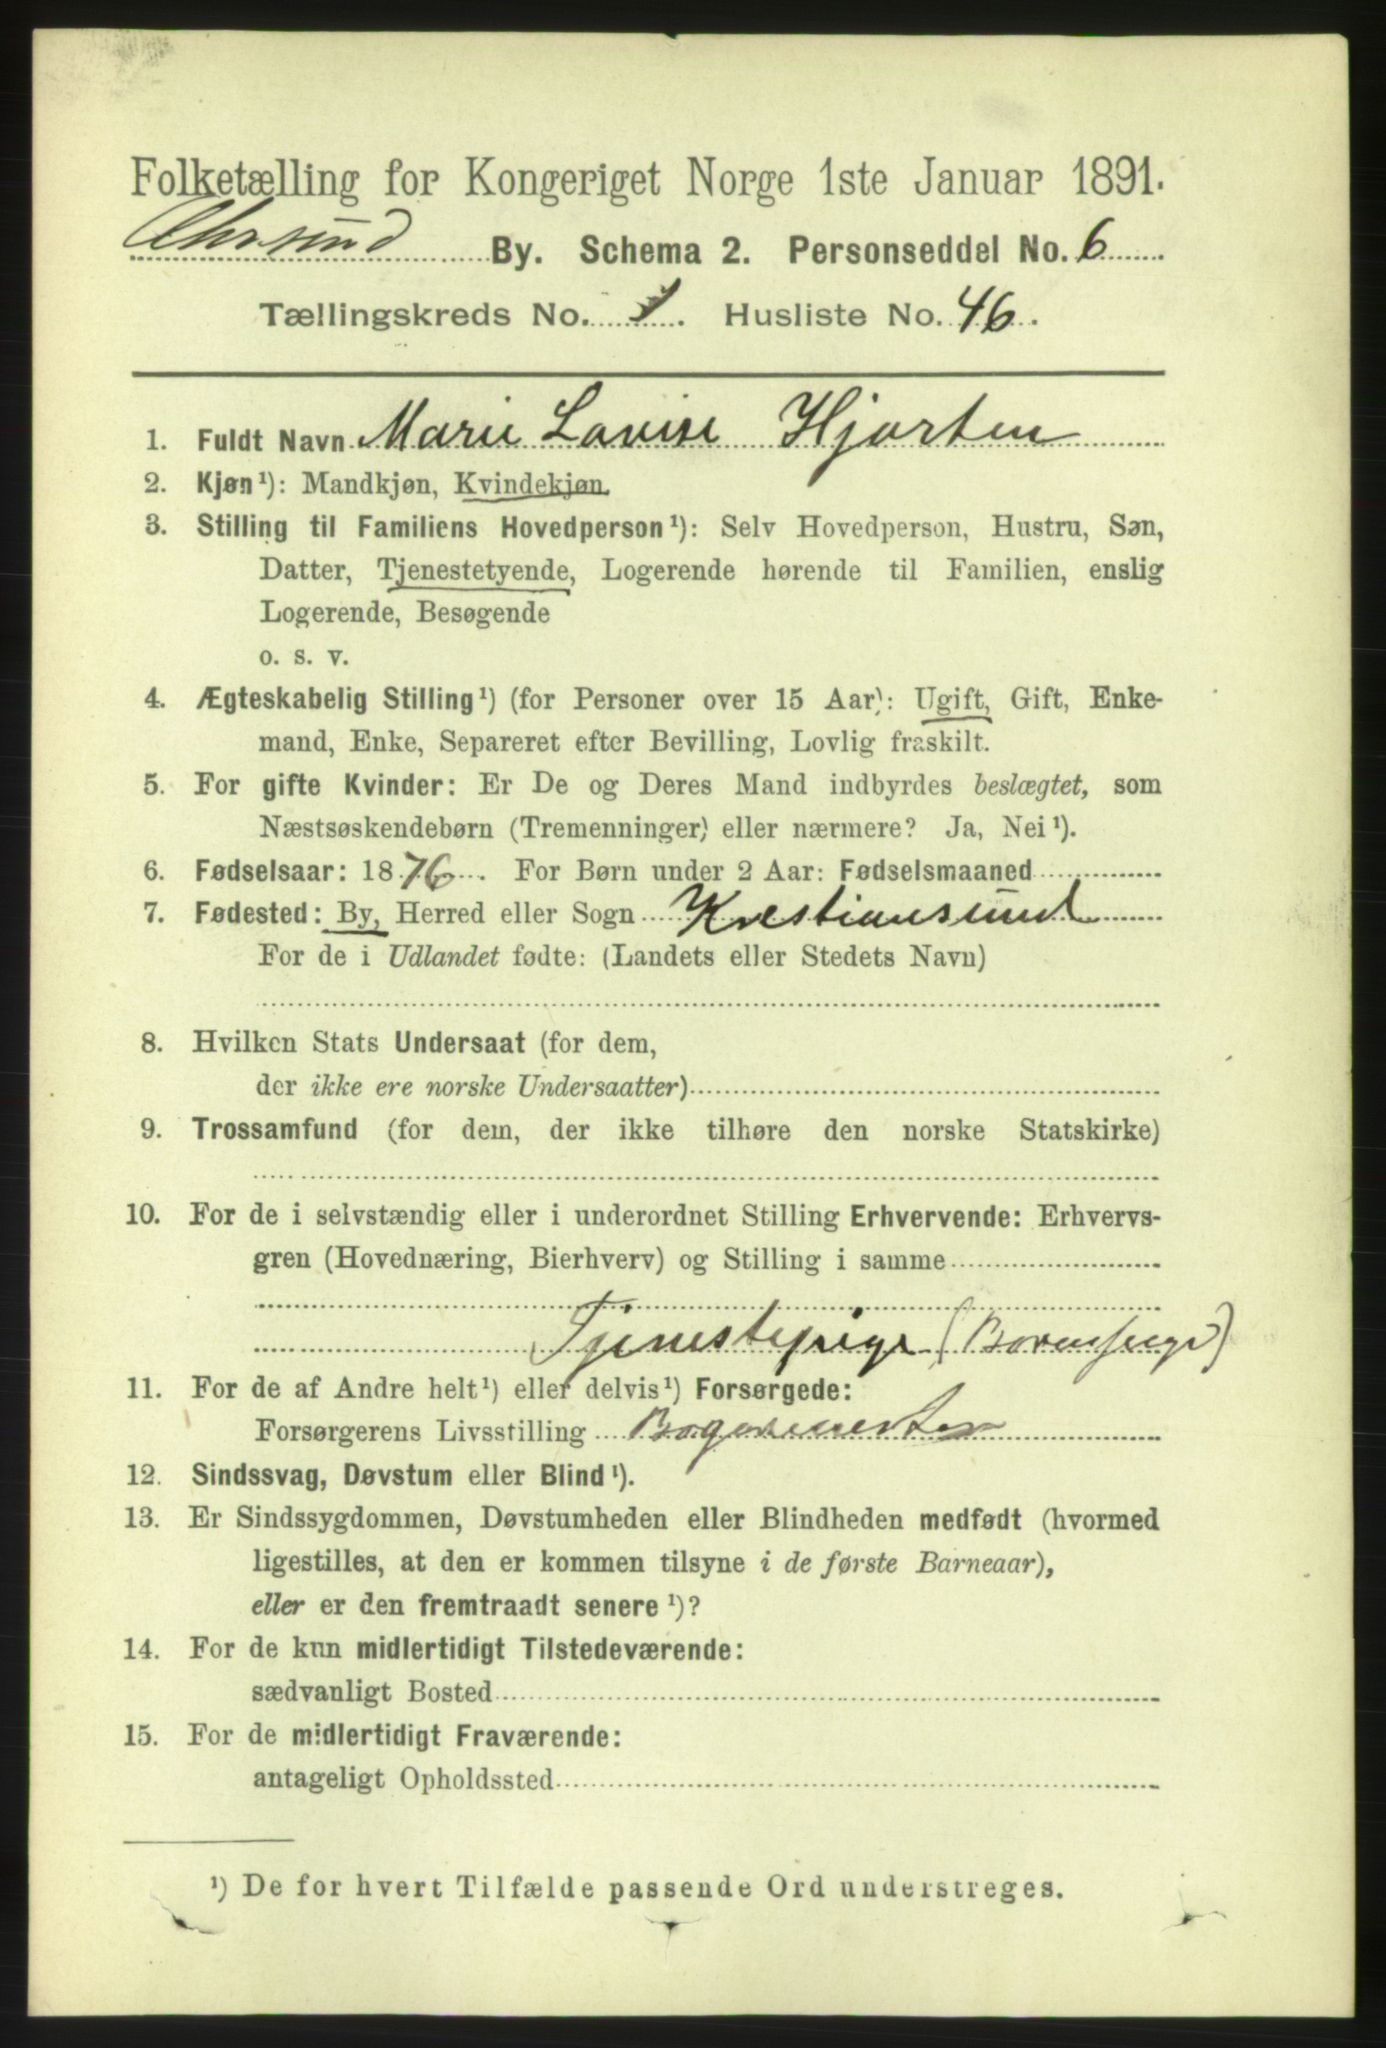 Folketælling for Kongeriget Norge 1ste Januar 1891.
Chrsund By. Schema 2. Personseddel No. 6
Tællingskreds No. 1. Husliste No. 46.
1. Fuldt Navn Marie Lovise Hjorten
2. Kjøn¹): Mandkjøn, Kvindekjøn.
3. Stilling til Familiens Hovedperson¹): Selv Hovedperson, Hustru, Søn,
Datter, Tjenestetyende, Logerende hørende til Familien, enslig
Logerende, Besøgende
o. s. v.
4. Ægteskabelig Stilling¹) (for Personer over 15 Aar): Ugift, Gift, Enke-
mand, Enke, Separeret efter Bevilling, Lovlig fraskilt.
5. For gifte Kvinder: Er De og Deres Mand indbyrdes beslægtet, som
Næstsøskendebørn (Tremenninger) eller nærmere? Ja, Nei¹).
6. Fødselsaar: 1876. For Børn under 2 Aar: Fødselsmaaned
7. Fødested: By, Herred eller Sogn Krestiansund
For de i Udlandet fødte: (Landets eller Stedets Navn)
8. Hvilken Stats Undersaat (for dem,
der ikke ere norske Undersaatter)
9. Trossamfund (for dem, der ikke tilhøre den norske Statskirke)
10. For de i selvstændig eller i underordnet Stilling Erhvervende: Erhvervs-
gren (Hovednæring, Bierhverv) og Stilling i samme
Tjenestepige
11. For de af Andre helt¹) eller delvis¹) Forsørgede:
Forsørgerens Livsstilling
12. Sindssvag, Døvstum eller Blind¹).
13. Er Sindssygdommen, Døvstumheden eller Blindheden medfødt (hvormed
ligestilles, at den er kommen tilsyne i de første Barneaar),
eller er den fremtraadt senere¹)?
14. For de kun midlertidigt Tilstedeværende:
sædvanligt Bosted
15. For de midlertidigt Fraværende:
antageligt Opholdssted
¹) De for hvert Tilfælde passende Ord understreges.